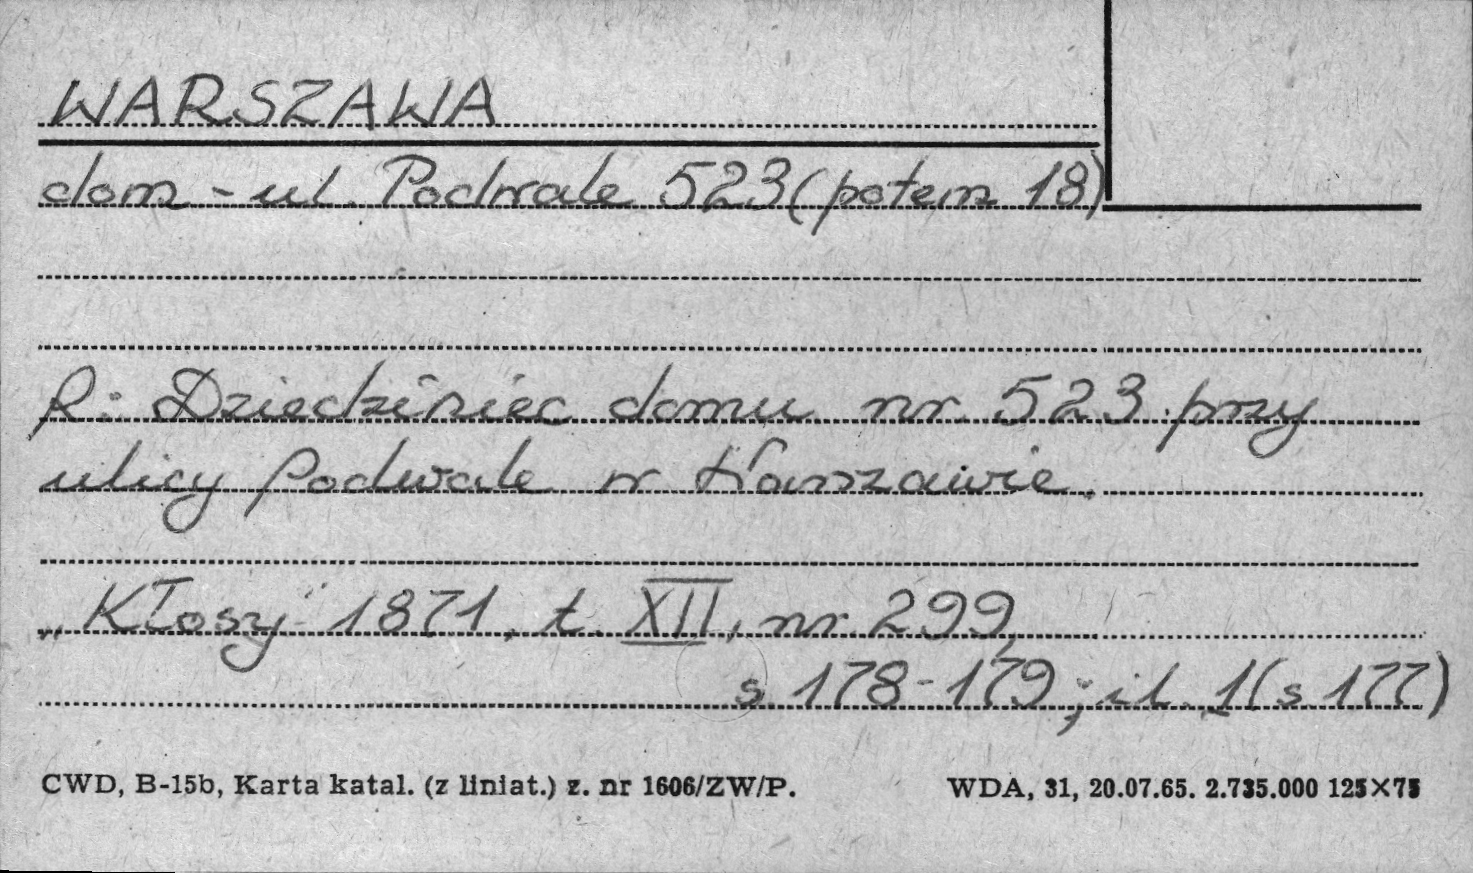 WARSZAWA
dom - ul. Podwale 523 (potem 18)
R: Dziedziniec domu nr 523 przy
ulicy Podwale w Warszawie.
„Kłosy" 1871, t. XII, nr 299,
s. 178-179; il. 1 (s 177)
CWD, B-15b, Karta katal. (z liniat.) z. nr 1606/ZW/P. WDA, 31, 20.07.65. 2.735.000 125×75